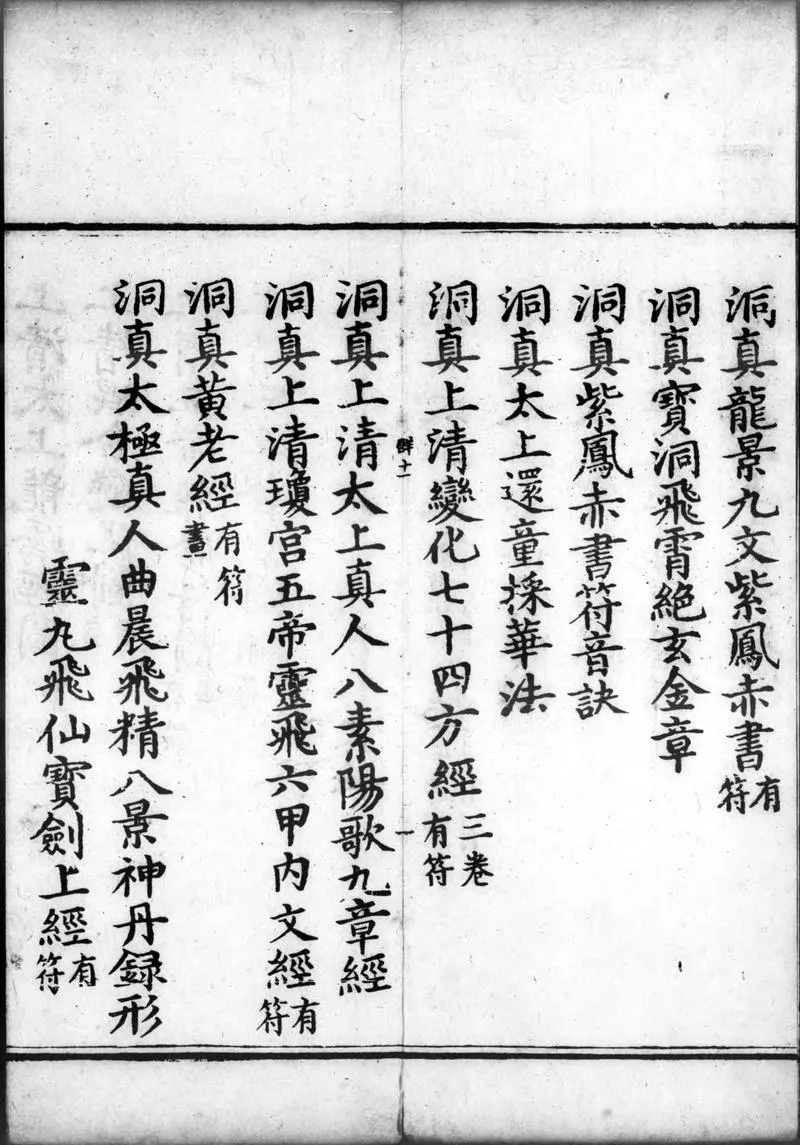 洞真龍景九文紫鳳赤書有符
洞真寶洞飛霄絕玄金章
洞真紫鳳赤書符音訣
洞真太上還童採華法
洞真上清變化七十四方經三卷有符
群十一
一
洞真上清太上真人八素陽歌九章經
洞真上清瓊宮五帝靈飛六甲內文經有符
洞真黃老經有符畫
洞真太極真人曲晨飛精八景神丹録形
靈丸飛仙寶劍上經有符